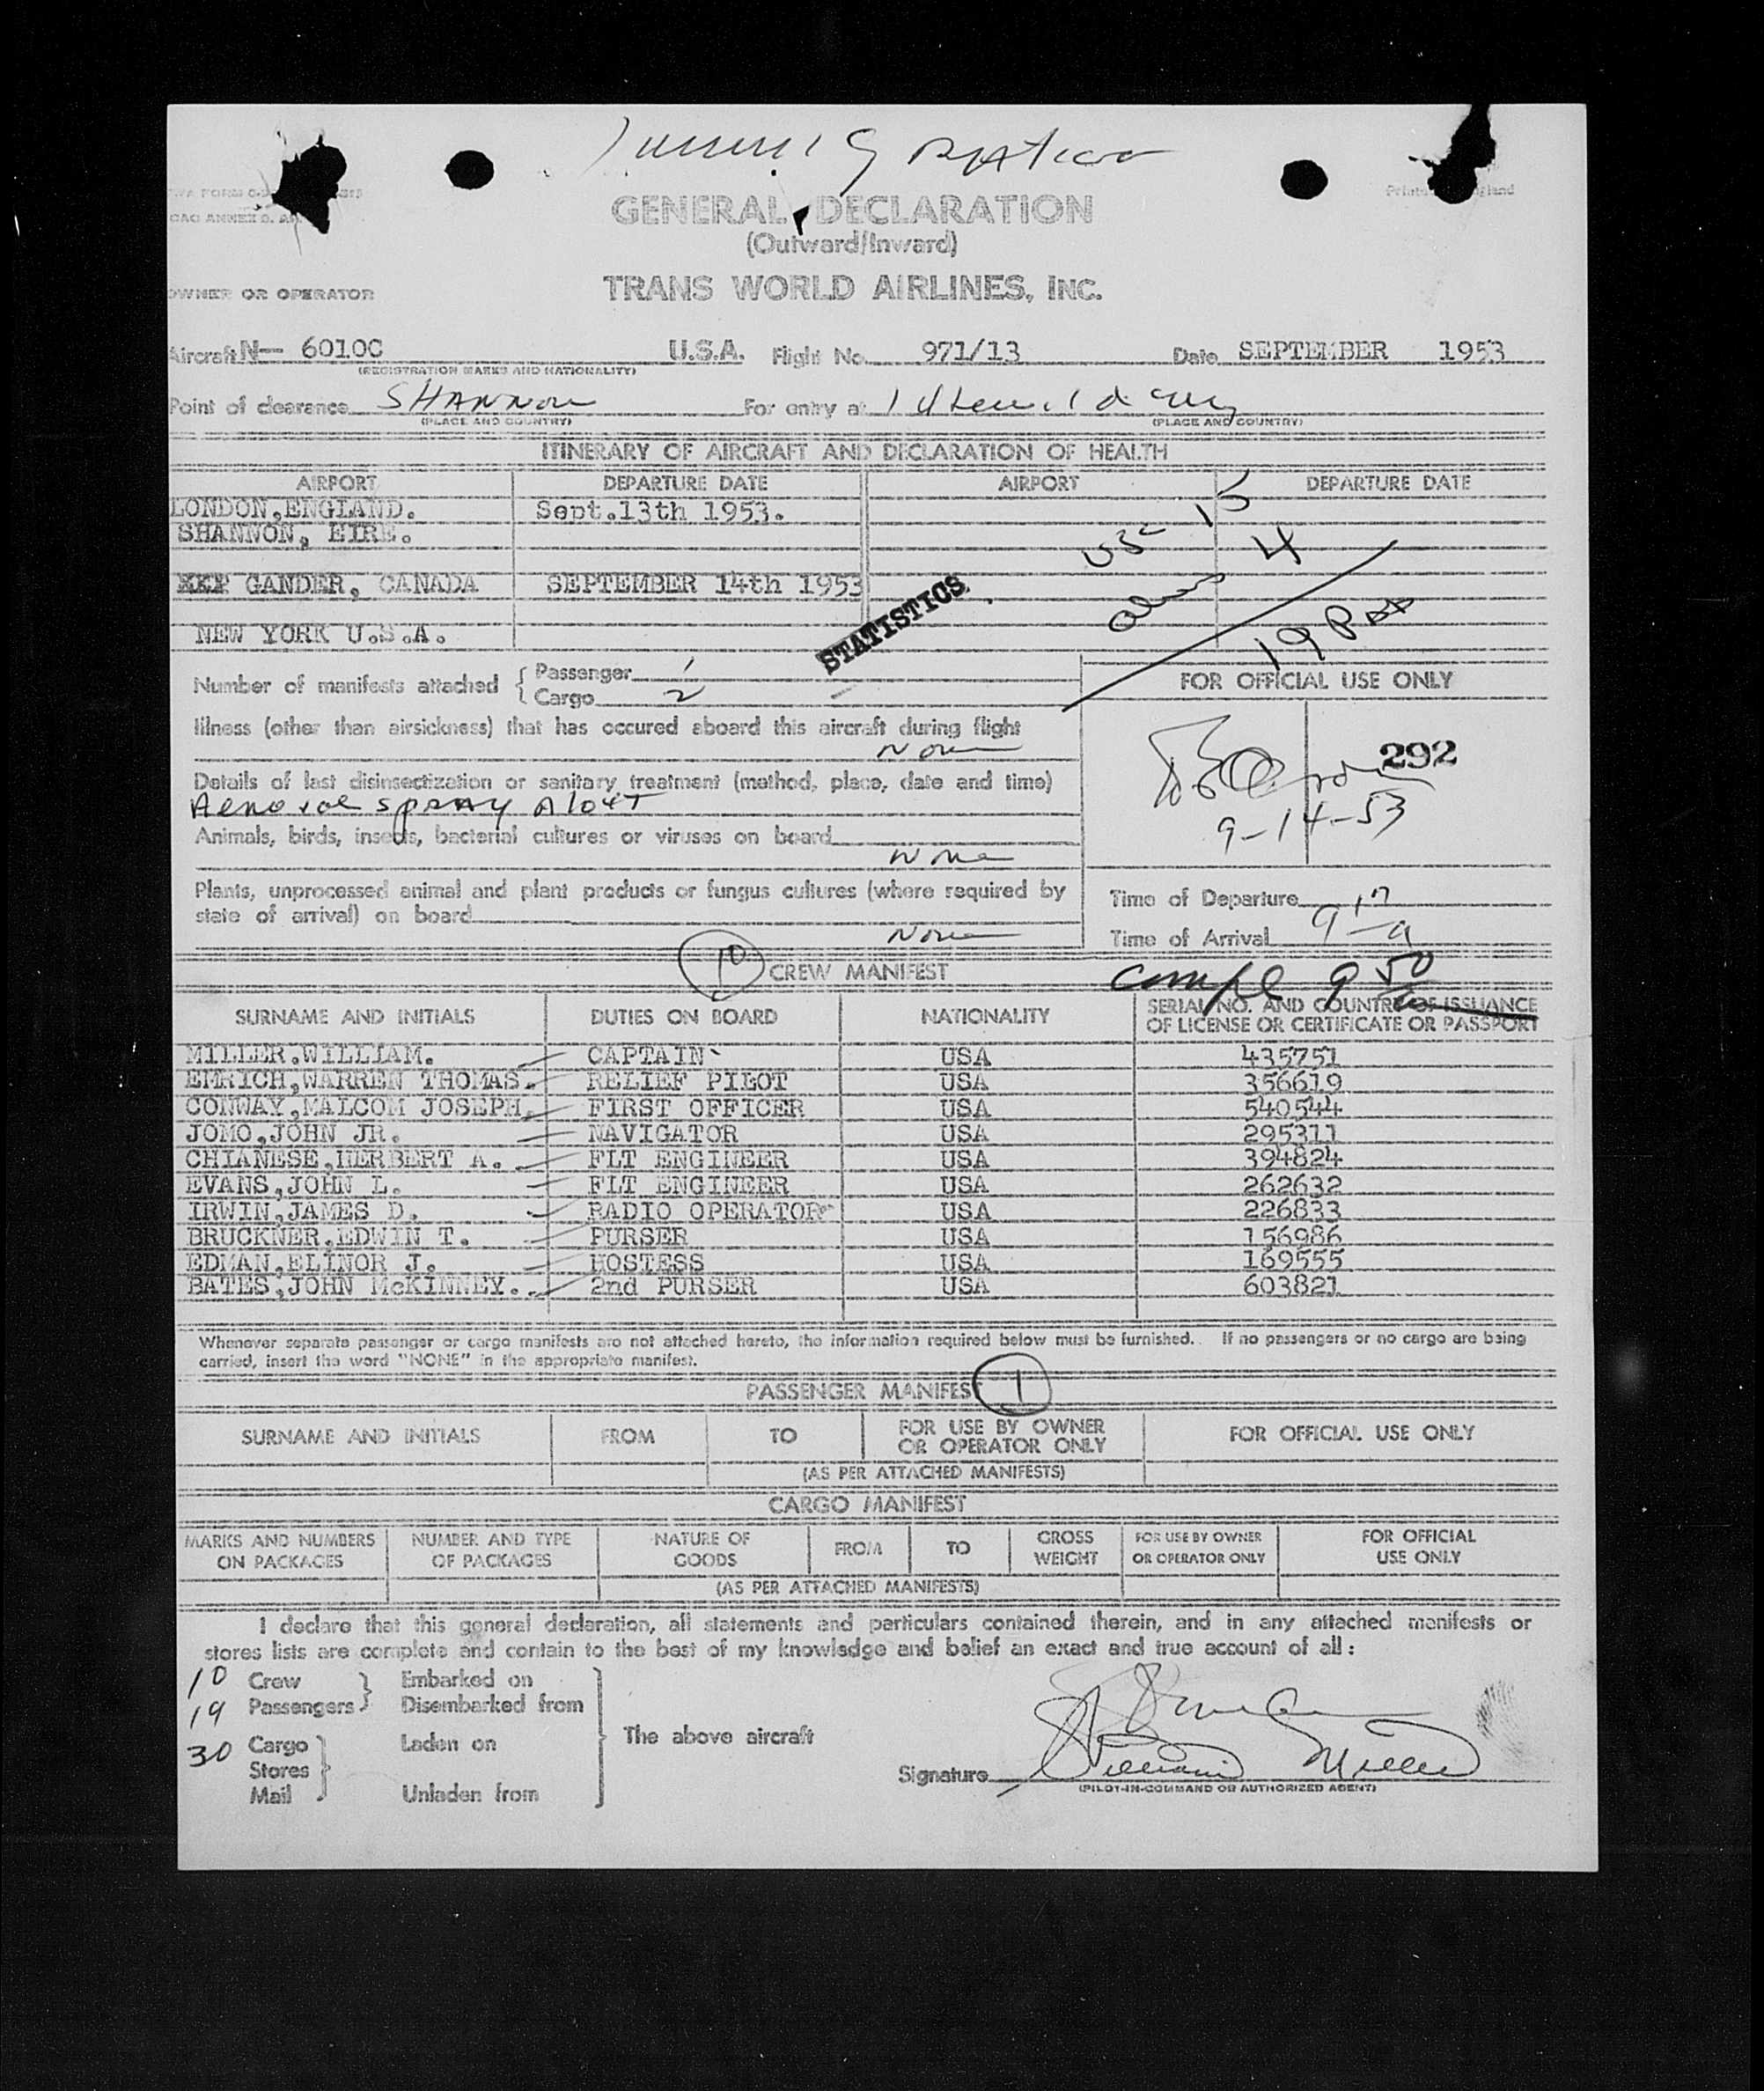 Immigration
GENERAL DECLARATION
(Outward/Inward)
TRANS WORLD AIRLINES, INC.
OWNER OR OPERATOR
Aircraft N- 6010C U.S.A. Flight No. 971/13 Date SEPTEMBER 1953
(REGISTRATION MARKS AND NATIONALITY)
Point of clearance SHANNON For entry at
(PLACE AND COUNTRY) (PLACE AND COUNTRY)
ITINERARY OF AIRCRAFT AND DECLARATION OF HEALTH
AIRPORT DEPARTURE DATE AIRPORT DEPARTURE DATE
LONDON,ENGLAND. Sept.13th 1953.
SHANNON, EIRE.
GANDER, CANADA SEPTEMBER 14th 1953
NEW YORK U.S.A.
USC 15
4
19 Pax
STATISTICS
Number of manifests attached { Passenger 1
Cargo 2
FOR OFFICIAL USE ONLY
Illness (other than airsickness) that has occured aboard this aircraft during flight
None
292
9-14-53
Details of last disinsectization or sanitary treatment (method, place, date and time)
Aerosol spray aloft
Animals, birds, insects, bacterial cultures or viruses on board
None
Plants, unprocessed animal and plant products or fungus cultures (where required by
state of arrival) on board
None
Time of Departure
Time of Arrival 9 17 a
10 CREW MANIFEST
Compl 9 50
SURNAME AND INITIALS DUTIES ON BOARD NATIONALITY SERIAL NO. AND COUNTRY OF ISSUANCE
OF LICENSE OR CERTIFICATE OR PASSPORT
MILLER.WILLIAM. CAPTAIN USA 435751
EMRICH,WARREN THOMAS. RELIEF PILOT USA 356619
CONWAY,MALCOM JOSEPH. FIRST OFFICER USA 540544
JOMO,JOHN JR. NAVIGATOR USA 295311
CHIANESE,HERBERT A. FLT ENGINEER USA 394824
EVANS,JOHN L. FLT ENGINEER USA 262632
IRWIN,JAMES D. RADIO OPERATOR USA 226833
BRUCKNER.EDWIN T. PURSER USA 156986
EDMAN,ELINOR J. HOSTESS USA 169555
BATES,JOHN McKINNEY. 2nd PURSER USA 603821
Whenever separate passenger or cargo manifests are not attached hereto, the information required below must be furnished. If no passengers or no cargo are being
carried, insert the word "NONE" in the appropriate manifest.
PASSENGER MANIFEST 1
SURNAME AND INITIALS FROM TO FOR USE BY OWNER
OR OPERATOR ONLY FOR OFFICIAL USE ONLY
(AS PER ATTACHED MANIFESTS)
CARGO MANIFEST
MARKS AND NUMBERS
ON PACKAGES NUMBER AND TYPE
OF PACKAGES NATURE OF
GOODS FROM TO GROSS
WEIGHT FOR USE BY OWNER
OR OPERATOR ONLY FOR OFFICIAL
USE ONLY
(AS PER ATTACHED MANIFESTS)
I declare that this general declaration, all statements and particulars contained therein, and in any attached manifests or
stores lists are complete and contain to the best of my knowledge and belief an exact and true account of all :
10 Crew Embarked on
19 Passengers Disembarked from
30 Cargo Laden on The above aircraft
Stores
Mail Unladen from
Signature William Miller
(PILOT-IN-COMMAND OR AUTHORIZED AGENT)